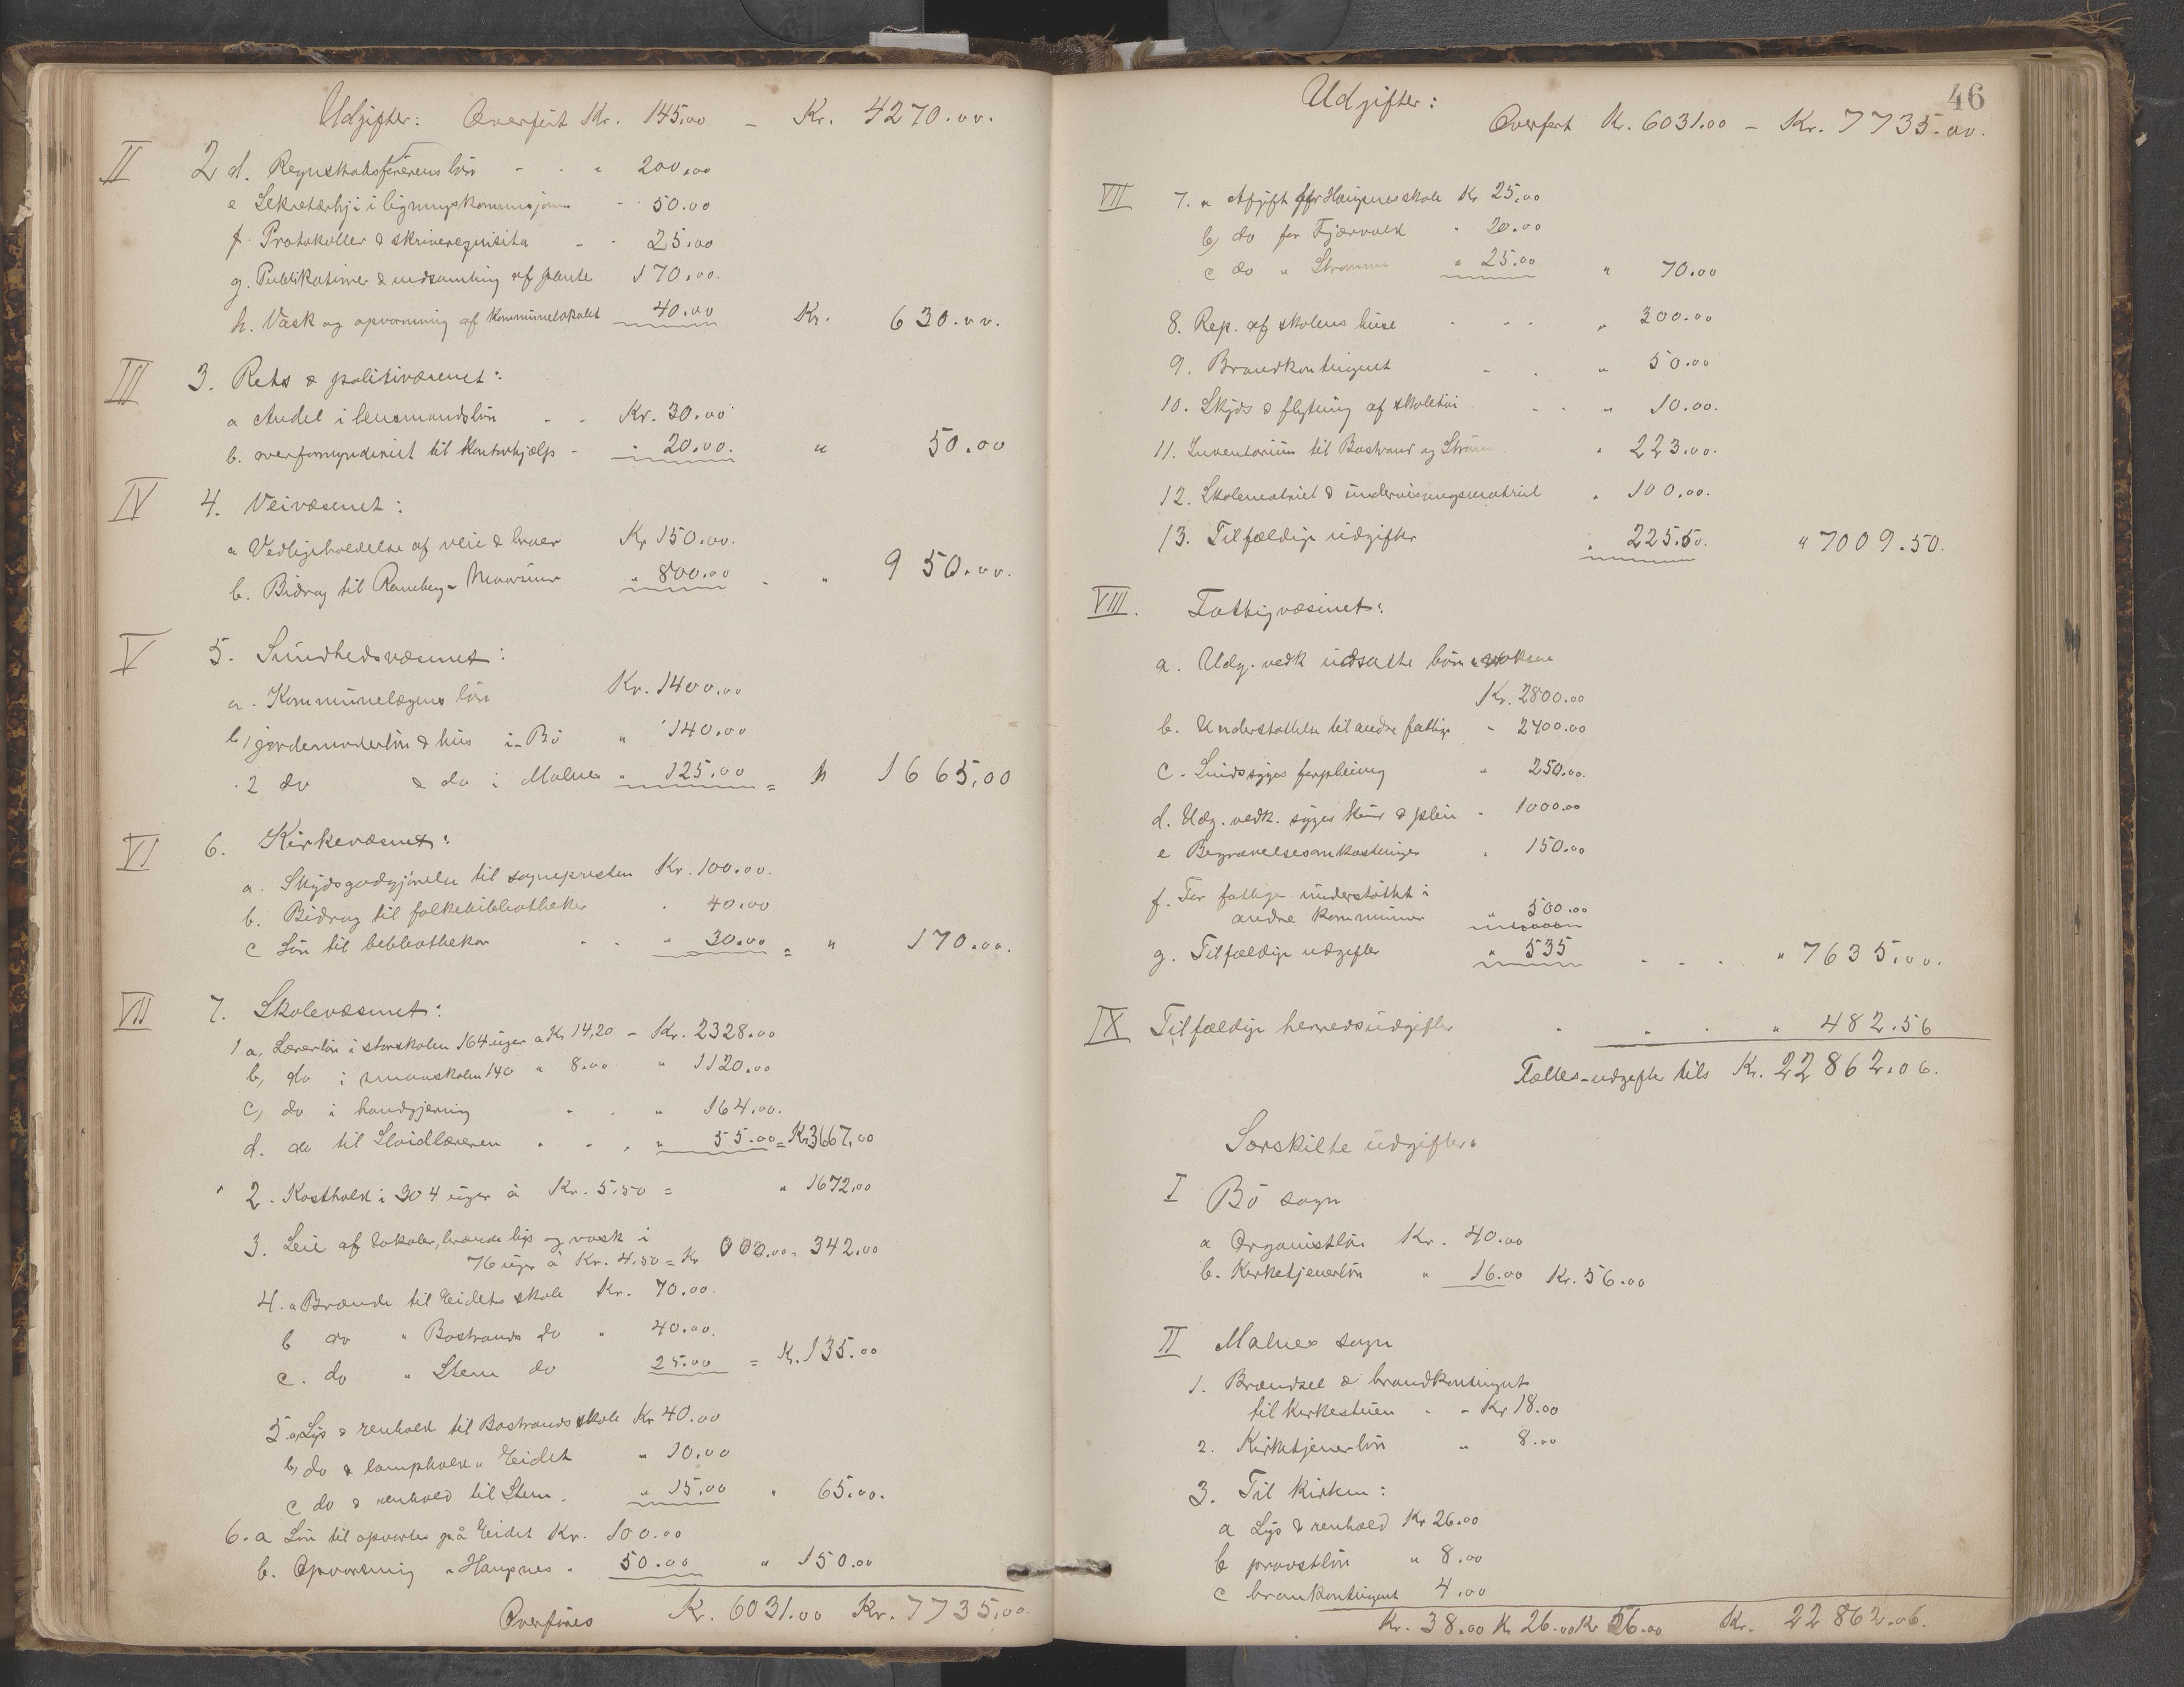 Udgifter: Overført Kr. 145.00 - Kr. 4270.00.
II 2 d. Regnskabsførerens løn - - " 200.00
e Sekretærhj i ligningskommisjonen - 50.00
f. Protokoller & skriverequisita - - 25.00
g. Publikationer & indsamling af 170.00.
h. Vask og opvarmning af Kommunelokalet 40.00 Kr. 630.00.
III 3. Rets & politivæsenet:
a Andel i lensmandsløn - - Kr. 30.00
b. overformynderiet til Kontorhjælp - " 20.00. " 50.00
IV 4. Veivæsenet:
a Vedligeholdelse af veie & broer Kr 150.00.
b. Bidrag til Ramberg - " 800.00 - " 950.00.
V 5. Sundhedsvæsenet:
a. Kommunelægens løn Kr. 1400.00
b 1 jordemoderløn & hus i Bø " 140.00
2 do & do i Malnes " 125.00 = " 1665.00
VI 6. Kirkevæsnet:
a. Skydsgodtgjørelse til sognepresten Kr. 100.00.
b. Bidrag til folkebibliotheker . 40.00
c Løn til bebliothekar - - " 30.00 = " 170.00.
VII 7. Skolevæsnet:
1 a, Lærerløn i storskolen 164 uger a Kr 14,20 - Kr. 2328.00
b, do i smaaskolen 140 " 8.00 " 1120.00
c, do i haandgjerning - . " 164.00.
d. do til Sløidlæreren . - . " 55.00 = Kr 3667.00
2. Kosthold i 304 uger à Kr. 5.50 = " 1672.00
3. Leie af lokaler, brænde lys og vask i
76 uger à Kr. 4.50 = Kr 000.00 = 342.00
4. a Brænde til Eidets skole Kr. 70.00.
b do " Bostrands do " 40.00.
c. do " Steen do 25.00 = Kr. 135.00
5. a, Lys & renhold til Bostrands skole Kr 40.00
b, do & lamphold " Eidet " 10.00
c do & renhold til Steen. " 15.00 " 65.00.
6. a Løn til opvarter på Eidet Kr. 100.00
b. Opvarming " Haugnes " 50.00 " 150.00
Overføres Kr. 6031.00 Kr. 7735.00.
46
Udgifter:
Overført Kr. 6031.00 - Kr. 7735.00.
VII 7. a Afgift for Haugnes skole Kr 25.00
b, do for Fjærvold " 20.00
c do " Straume " 25.00 " 70.00
8. Rep. af skolens huse - - - " 300.00
9. Brandkontingent - . " 50.00
10. Skyds & flytning af skoletøi . . " 10.00.
11. Inventarium til Bostrand og Straum " 223.00.
12. Skolemateriel & undervisningsmateriel . 100.00.
13. Tilfældige udgifter . 225.50. " 7009.50.
VIII. Fattigvæsenet:
a. Udg. vedk udsatte børn & voksne
Kr. 2800.00
b. Understøttelse til andre fattige - 2400.00
c. Sindssyges forpleining " 250.00.
d. Udg. vedk. syges kur & pleie - 1000.00
e Begravelsesomkostninger . 150.00
f. For fattige understøttet i
andre Kommuner " 500.00
g. Tilfældige udgifter " 535 - - . " 7635.00.
IX Tilfældige herredsudgifter - " . " 482.56
Fælles-udgifter tils Kr. 22862.06.
Særskilte udgifter.
I Bø sogn
a Organistløn Kr. 40.00
b. Kirketjenerløn " 16.00 Kr. 56.00
II Malnes sogn
1. Brændsel & brandkontingent
til Kirkestuen - - Kr 18.00
2. Kirketjenerløn " 8.00
3. Til Kirken:
a Lys & renhold Kr 26.00
b provstløn " 8.00
c brankontingent 4.00
Kr. 38.00 Kr 26.00 Kr 56.00 Kr. 22862.06.